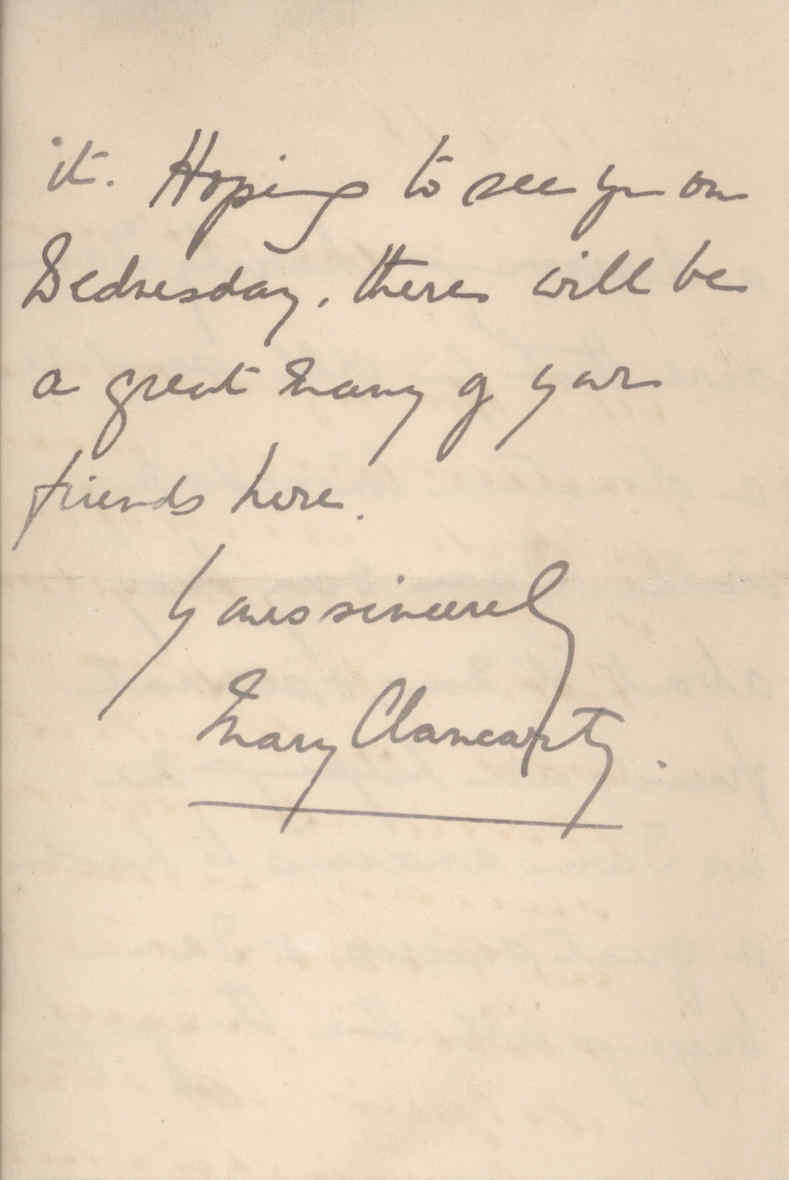 it. Hoping to see you on
Wednesday, there will be
a great many of your
friends here.
Yours sincerely
Mary Clancarty.